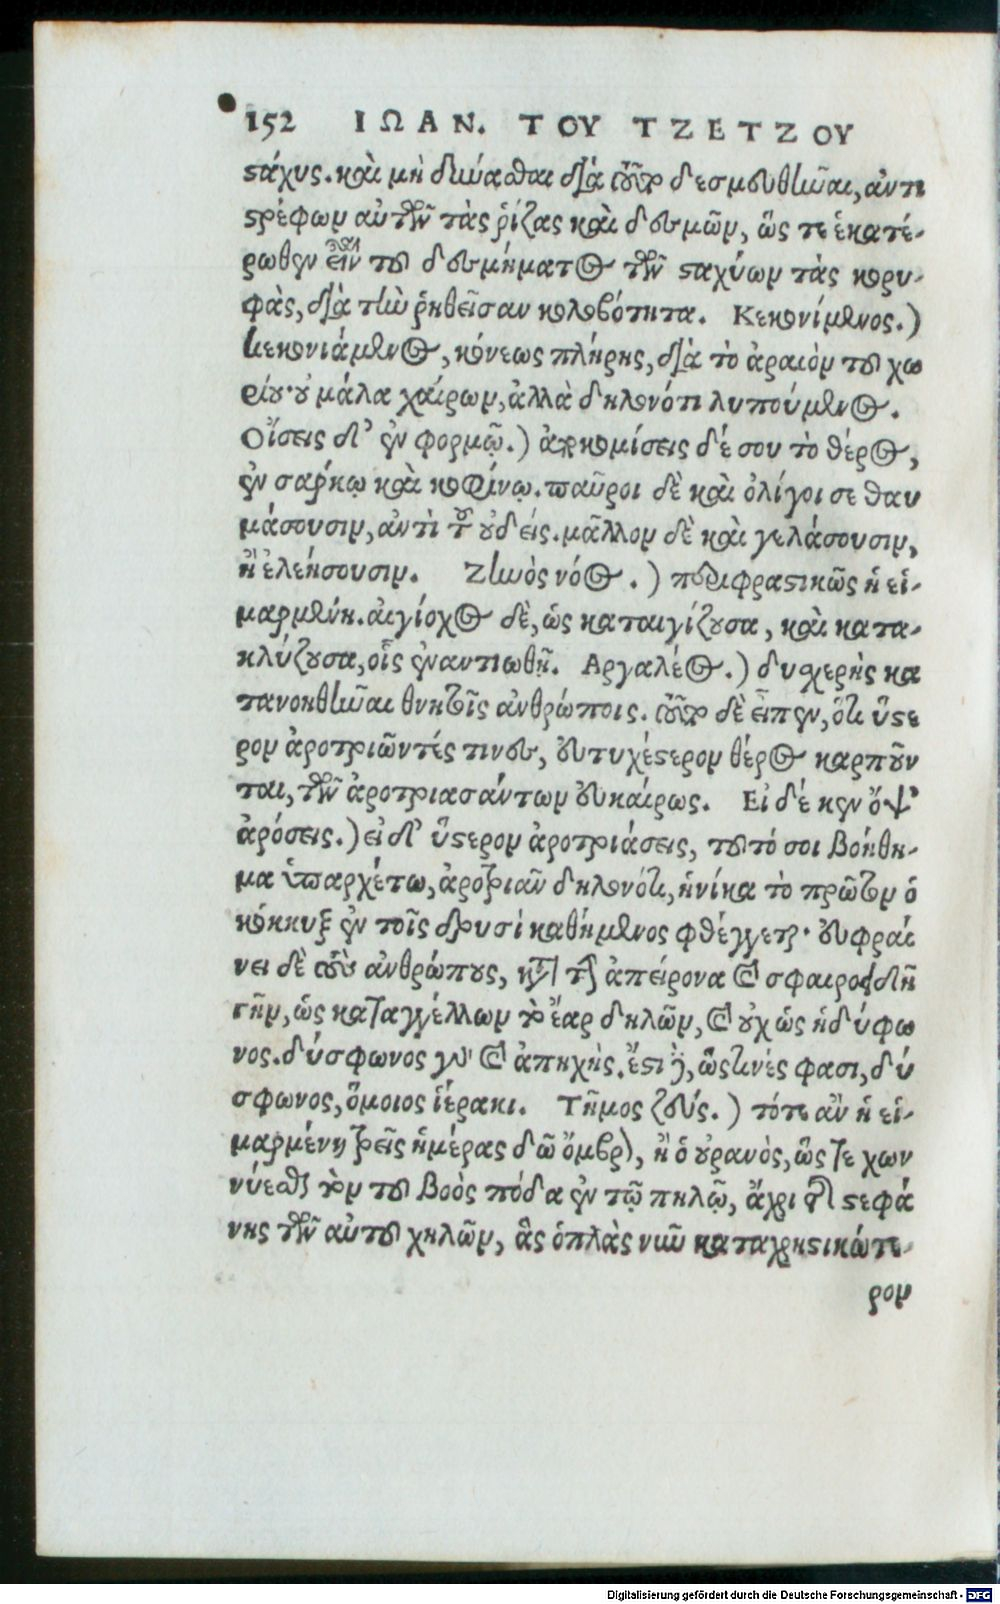 152 ΙΩΑΝ. ΤΟΥ ΤΖΕΤΖΟΥ
στάχυς. καὶ μὴ δύνασθαι διὰ τοῦτο δεσμευθῆναι, ἀντι
στρέφων αὐτῶν τὰς ῥίζας καὶ δεσμῶν, ὥς τε ἑκατέ-
ρωθεν εἶναι τοῦ δεσμήματος τῶν σταχύων τὰς κορυ-
φὰς, διὰ τὴν ῥηθεῖσαν κολοβότητα. Κεκονίμενος.)
κεκονιάμενος, κόνεως πλήρης, διὰ τὸ ἀραιὸν τοῦ χω
ρίου· οὐ μάλα χαίρων, ἀλλὰ δηλονότι λυπούμενος.
Οἴσεις δ' ἐν φορμῷ.) ἀποκομίσεις δέ σου τὸ θέρος,
ἐν σαρκῳ καὶ κοφίνῳ. παῦροι δὲ καὶ ὀλίγοι σε θαυ
μάσουσιν, ἀντὶ τοῦ οὐδείς. μᾶλλον δὲ καὶ γελάσουσιν,
ἢ ἐλεήσουσιν. Ζηνὸς νόος.) περιφραστικῶς ἡ εἱ-
μαρμένη. αἰγίοχος δὲ, ὡς καταιγίζουσα, καὶ κατα-
κλύζουσα, οἷς ἐναντιωθῇ. Αργαλέος.) δυσχερὴς κα
τανοηθῆναι θνητοῖς ἀνθρώποις. τοῦτο δὲ εἶπεν, ὅτι ὕστε
ρον ἀροτριῶντές τινες, εὐτυχέστερον θέρος καρποῦν
ται, τῶν ἀροτριασάντων εὐκαίρως. Εἰ δέ κεν ὄψ'
ἀρόσεις.) εἰ δ' ὕστερον ἀροτριάσεις, τοῦτό σοι βοήθη-
μα ὑπαρχέτω, ἀροτριᾶν δηλονότι, ἡνίκα τὸ πρῶτον ὁ
κόκκυξ ἐν τοῖς δρυσὶ καθήμενος φθέγγεται· εὐφραί
νει δὲ τοὺς ἀνθρώπους, κατὰ τὴν ἀπείρονα καὶ σφαιροειδῆ
γῆν, ὡς καταγγέλλων τὸ ἔαρ δηλῶν, καὶ οὐχ ὡς ἡδύφω
νος. δύσφωνος γὰρ καὶ ἀπηχής. ἔστι γὰρ, ὥς τινές φασι, δύ
σφωνος, ὅμοιος ἱέρακι. Τῆμος ζεύς.) τότε ἂν ἡ εἱ-
μαρμένη τρεῖς ἡμέρας δῶ ὄμβρον, ἢ ὁ οὐρανὸς, ὥς τε χων
νύεσθαι τὸν τοῦ βοὸς πόδα ἐν τῷ πηλῷ, ἄχρι τῆς στεφά
νης τῶν αὐτοῦ χηλῶν, ἃς ὁπλὰς νῦν καταχρηστικώτε-
ρον